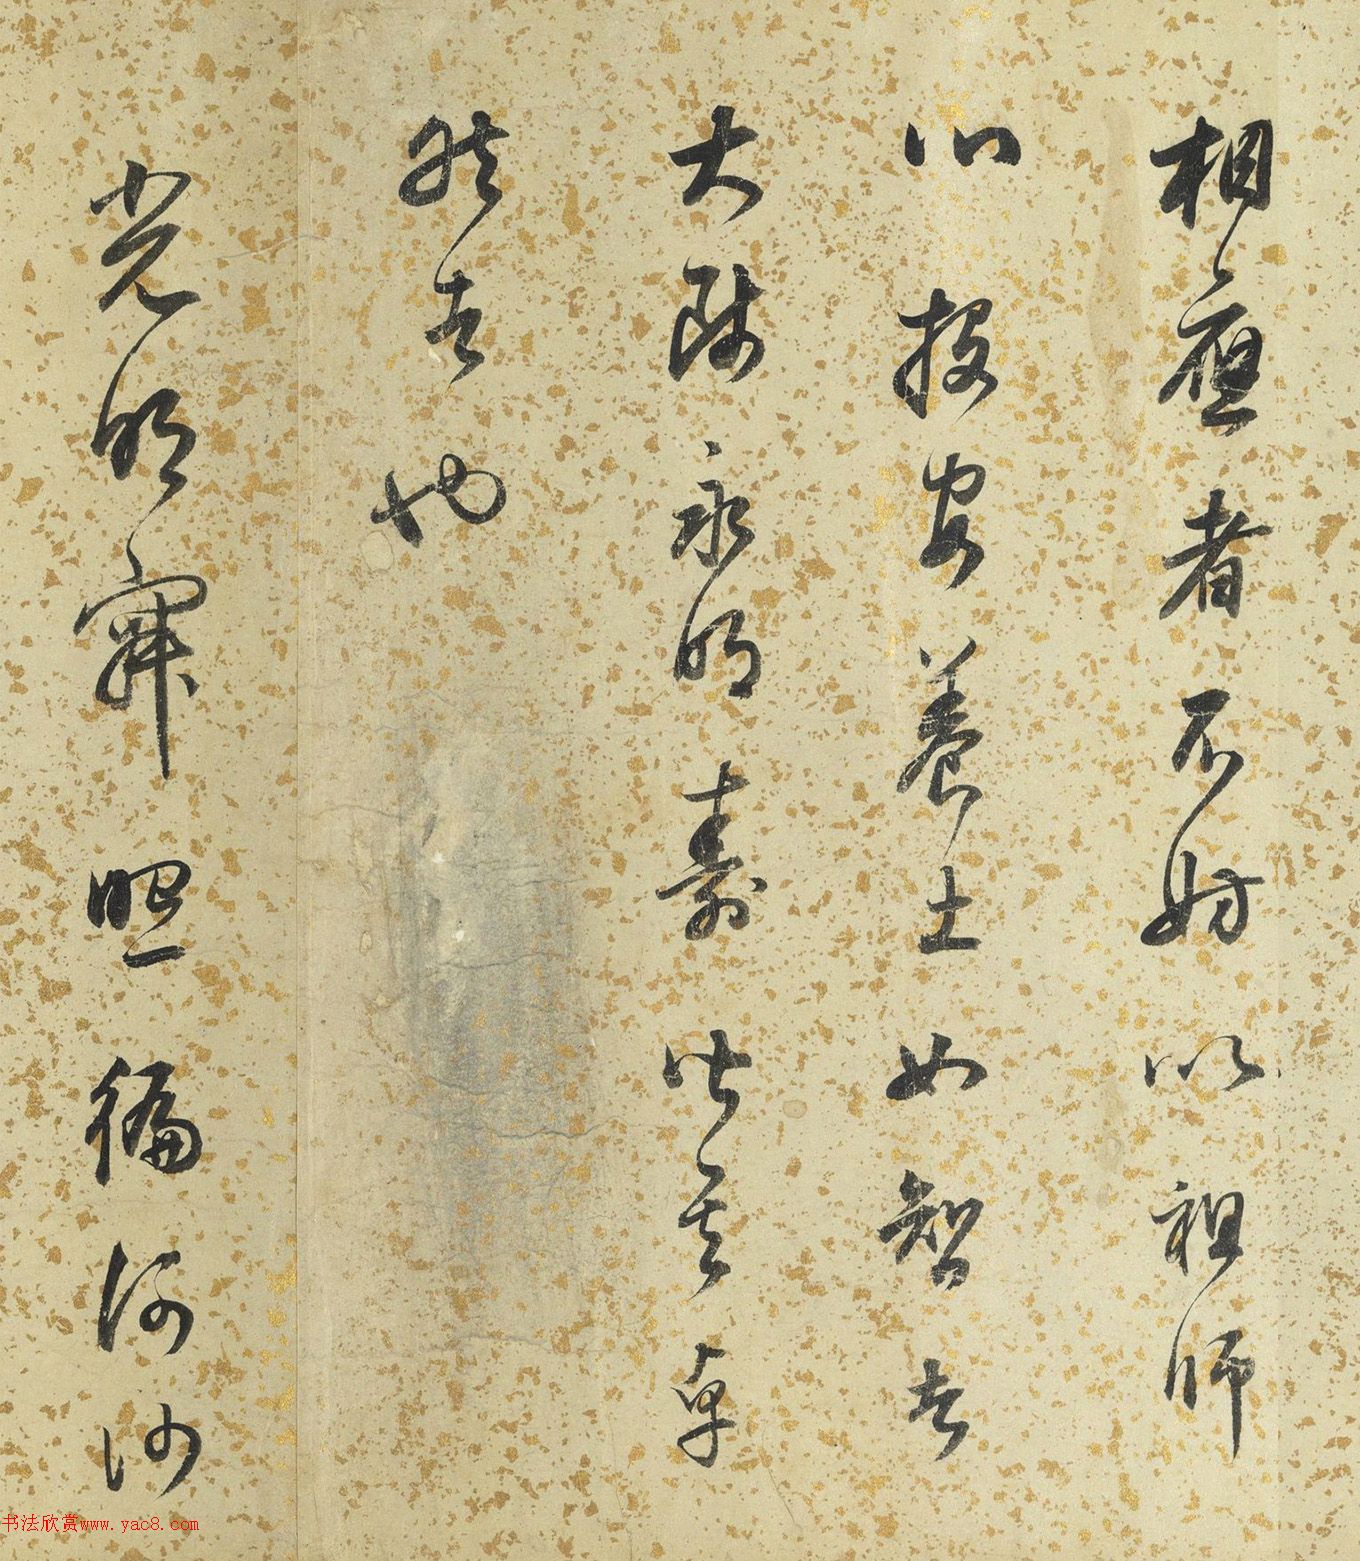 相應者不妨以祖師
心投安養土如智者
大師永明壽皆其卓
然者也
光明寂照徧河沙
书法欣赏www.yac8.com